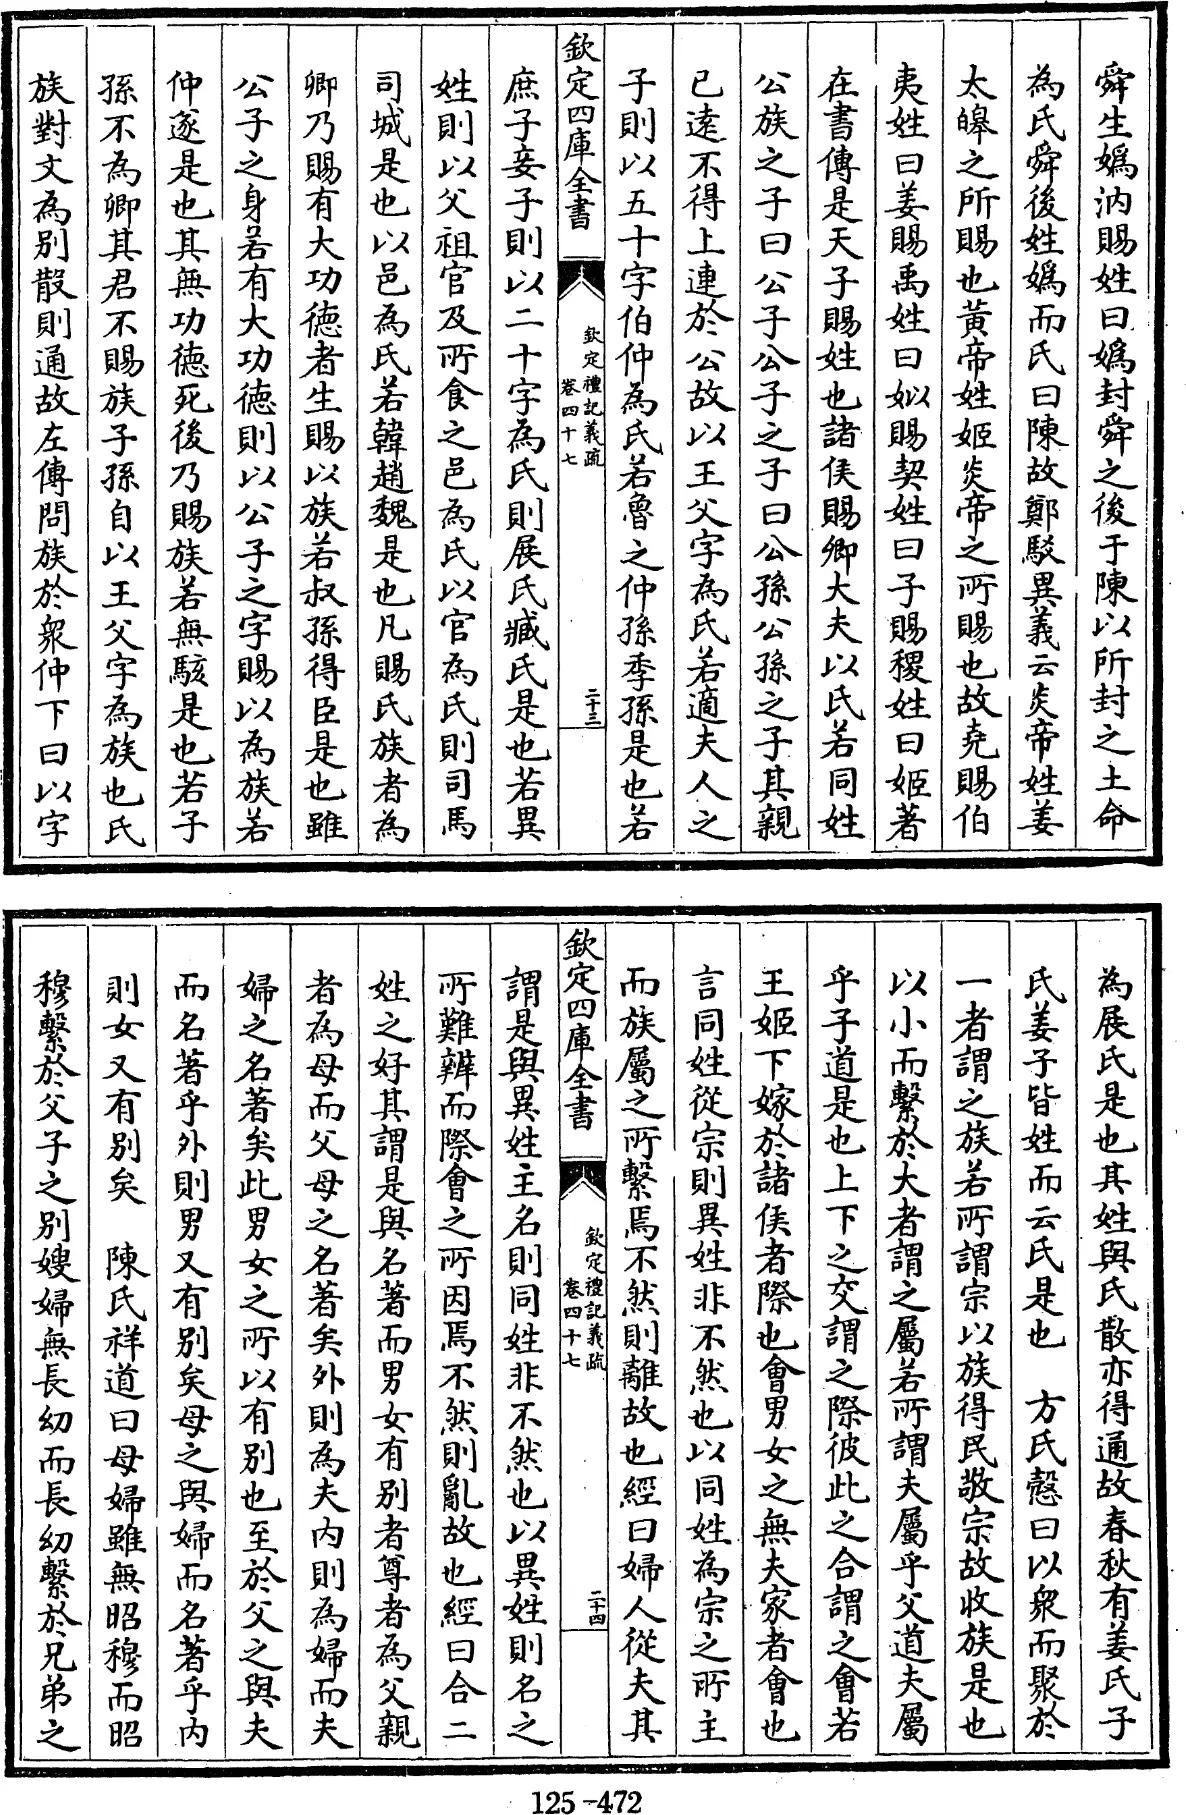 舜生嬀汭賜姓曰嬀封舜之後于陳以所封之土命
為氏舜後姓嬀而氏曰陳故鄭駁異義云炎帝姓姜
太皞之所賜也黃帝姓姬炎帝之所賜也故堯賜伯
夷姓曰姜賜禹姓曰姒賜契姓曰子賜稷姓曰姬著
在書傳是天子賜姓也諸侯賜卿大夫以氏若同姓
公族之子曰公子公子之子曰公孫公孫之子其親
已遠不得上連於公故以王父字為氏若適夫人之
子則以五十字伯仲為氏若魯之仲孫季孫是也若
欽定四庫全書
欽定禮記義疏
卷四十七
二十三
庶子妾子則以二十字為氏則展氏臧氏是也若異
姓則以父祖官及所食之邑為氏以官為氏則司馬
司城是也以邑為氏若韓趙魏是也凡賜氏族者為
卿乃賜有大功德者生賜以族若叔孫得臣是也雖
公子之身若有大功德則以公子之字賜以為族若
仲遂是也其無功德死後乃賜族若無駭是也若子
孫不為卿其君不賜族子孫自以王父字為族也氏
族對文為别散則通故左傳問族於衆仲下曰以字
為展氏是也其姓與氏散亦得通故春秋有姜氏子
氏姜子皆姓而云氏是也 方氏慤曰以衆而聚於
一者謂之族若所謂宗以族得民敬宗故收族是也
以小而繫於大者謂之屬若所謂夫屬乎父道夫屬
乎子道是也上下之交謂之際彼此之合謂之會若
王姬下嫁於諸侯者際也會男女之無夫家者會也
言同姓從宗則異姓非不然也以同姓為宗之所主
而族屬之所繫焉不然則離故也經曰婦人從夫其
欽定四庫全書
欽定禮記義疏
卷四十七
二十四
謂是與異姓主名則同姓非不然也以異姓則名之
所難辨而際會之所因焉不然則亂故也經曰合二
姓之好其謂是與名著而男女有别者尊者為父親
者為母而父母之名著矣外則為夫内則為婦而夫
婦之名著矣此男女之所以有别也至於父之與夫
而名著乎外則男又有别矣母之與婦而名著乎内
則女又有别矣 陳氏祥道曰母婦雖無昭穆而昭
穆繫於父子之别嫂婦無長幼而長幼繫於兄弟之
125-472